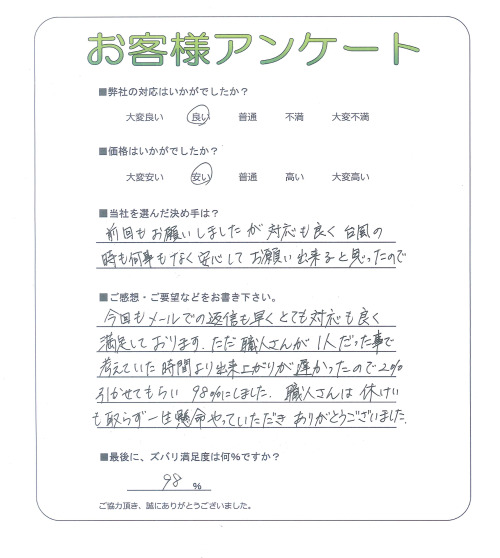 お客様アンケート
■弊社の対応はいかがでしたか？
大変良い 良い 普通 不満 大変不満
■価格はいかがでしたか？
大変安い 安い 普通 高い 大変高い
■当社を選んだ決め手は？
前回もお願いしましたが対応も良く台風の
時も何事もなく安心してお願い出来ると思ったので
■ご感想・ご要望などをお書き下さい。
今回もメールでの返信も早くとても対応も良く
満足しております。ただ職人さんが1人だった事で
考えていた時間より出来上がりが遅かったので2%
引かせてもらい 98%にしました。職人さんは休けい
も取らず一生懸命やっていただきありがとうございました。
■最後に、ズバリ満足度は何%ですか？
98 %
ご協力頂き、誠にありがとうございました。